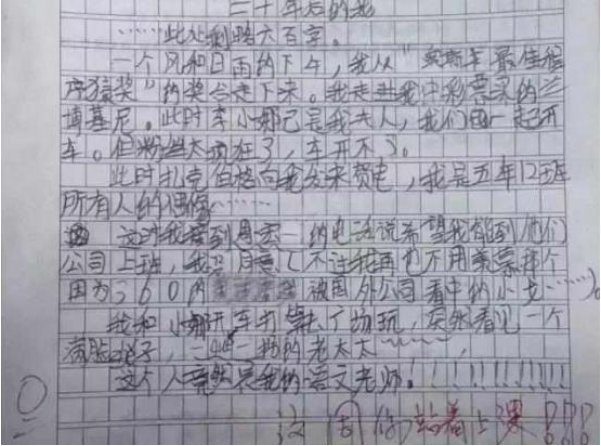 二十年后的我
……此处剩略六百字。
一个风和日雨的下午，我从"奥斯卡最佳程
序猿奖"的奖台走下来。我走进我中彩票买的兰
博基尼。此时李小娜已是我夫人，我们俩一起开
车。但粉丝太疯狂了，车开不了。
此时扎克伯格向我发来贺电，我是五年12班
所有人的偶像……
这时我接到 的电话说希望我能到他们
公司上班，我 不过我再也不用 那个
因为360的 被国外公司看中的小 ……
我和小娜开车 了 玩，突然看见一个
满脸 子， 的老太太……
这个人竟然是我的语文老师！！！！！！！！！
这周你站着上课！！！